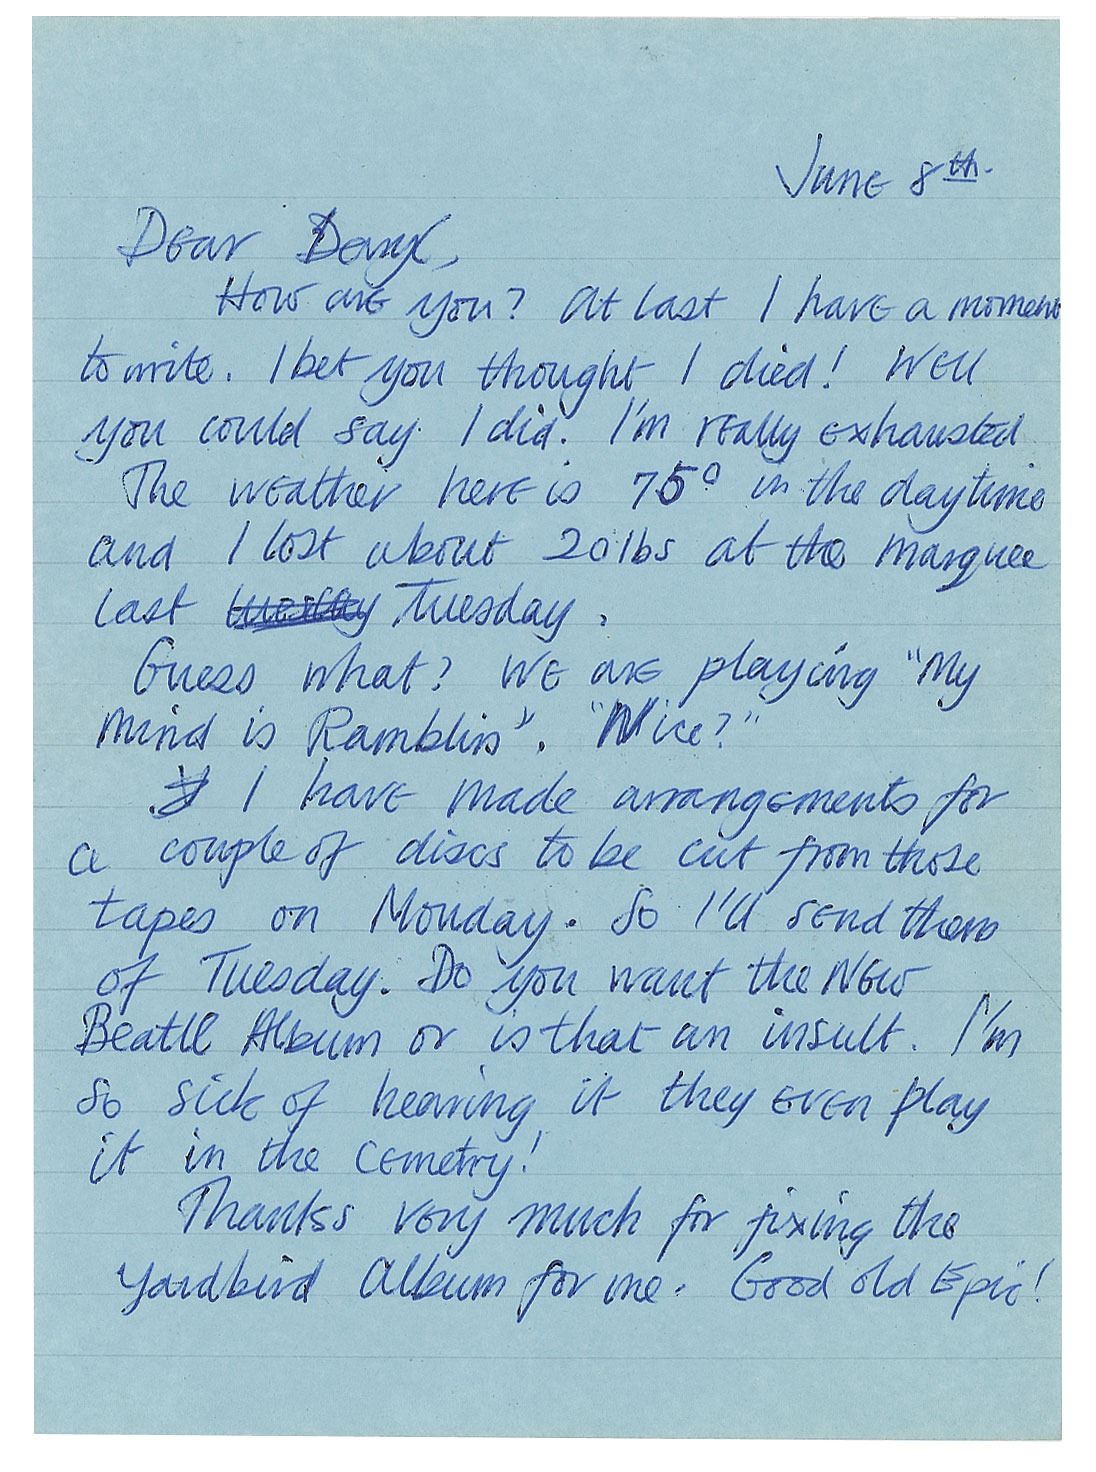 June 8th.
Dear Deryl,
How are you? At last I have a moment
to write. I bet you thought I died! Well
you could say I did. I'm really exhausted
The weather here is 75° in the daytime
and I lost about 20lbs at the marquee
last Tuesday.
Guess what? We are playing "My
Mind is Ramblin". "Nice?"
I have made arrangements for
a couple of discs to be cut from those
tapes on Monday. So I'll send them
of Tuesday. Do you want the New
Beatle Album or is that an insult. I'm
so sick of hearing it they even play
it in the cemetry!
Thanks very much for fixing the
Yardbird Album for me. Good old Epic!